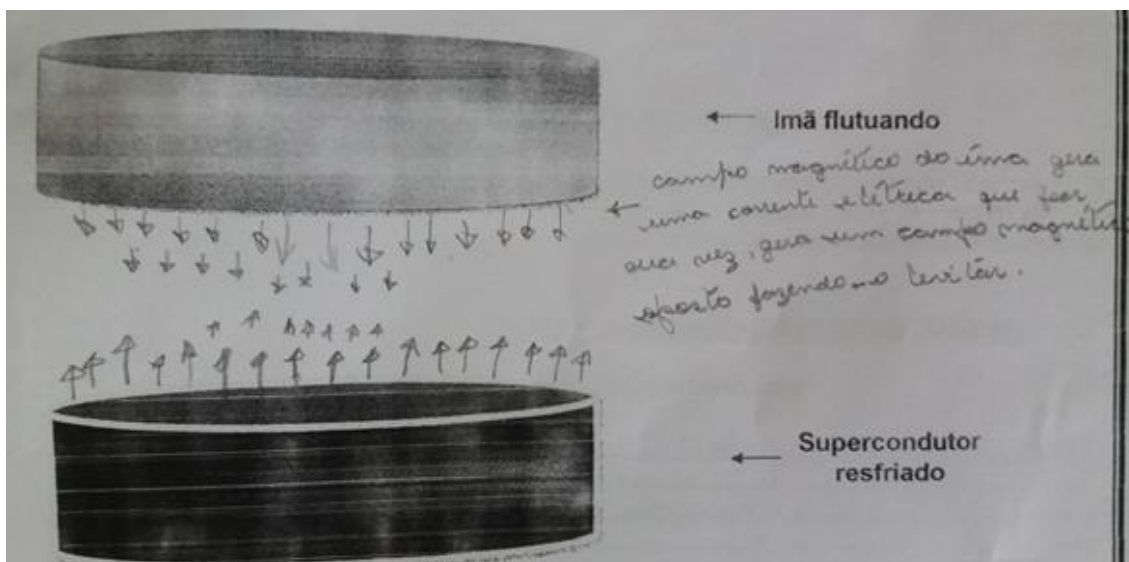 Imã flutuando
campo magnético do ímã gera
uma corrente elétrica que por
sua vez, gera um campo magnético
oposto fazendo-o levitar.
Supercondutor
resfriado